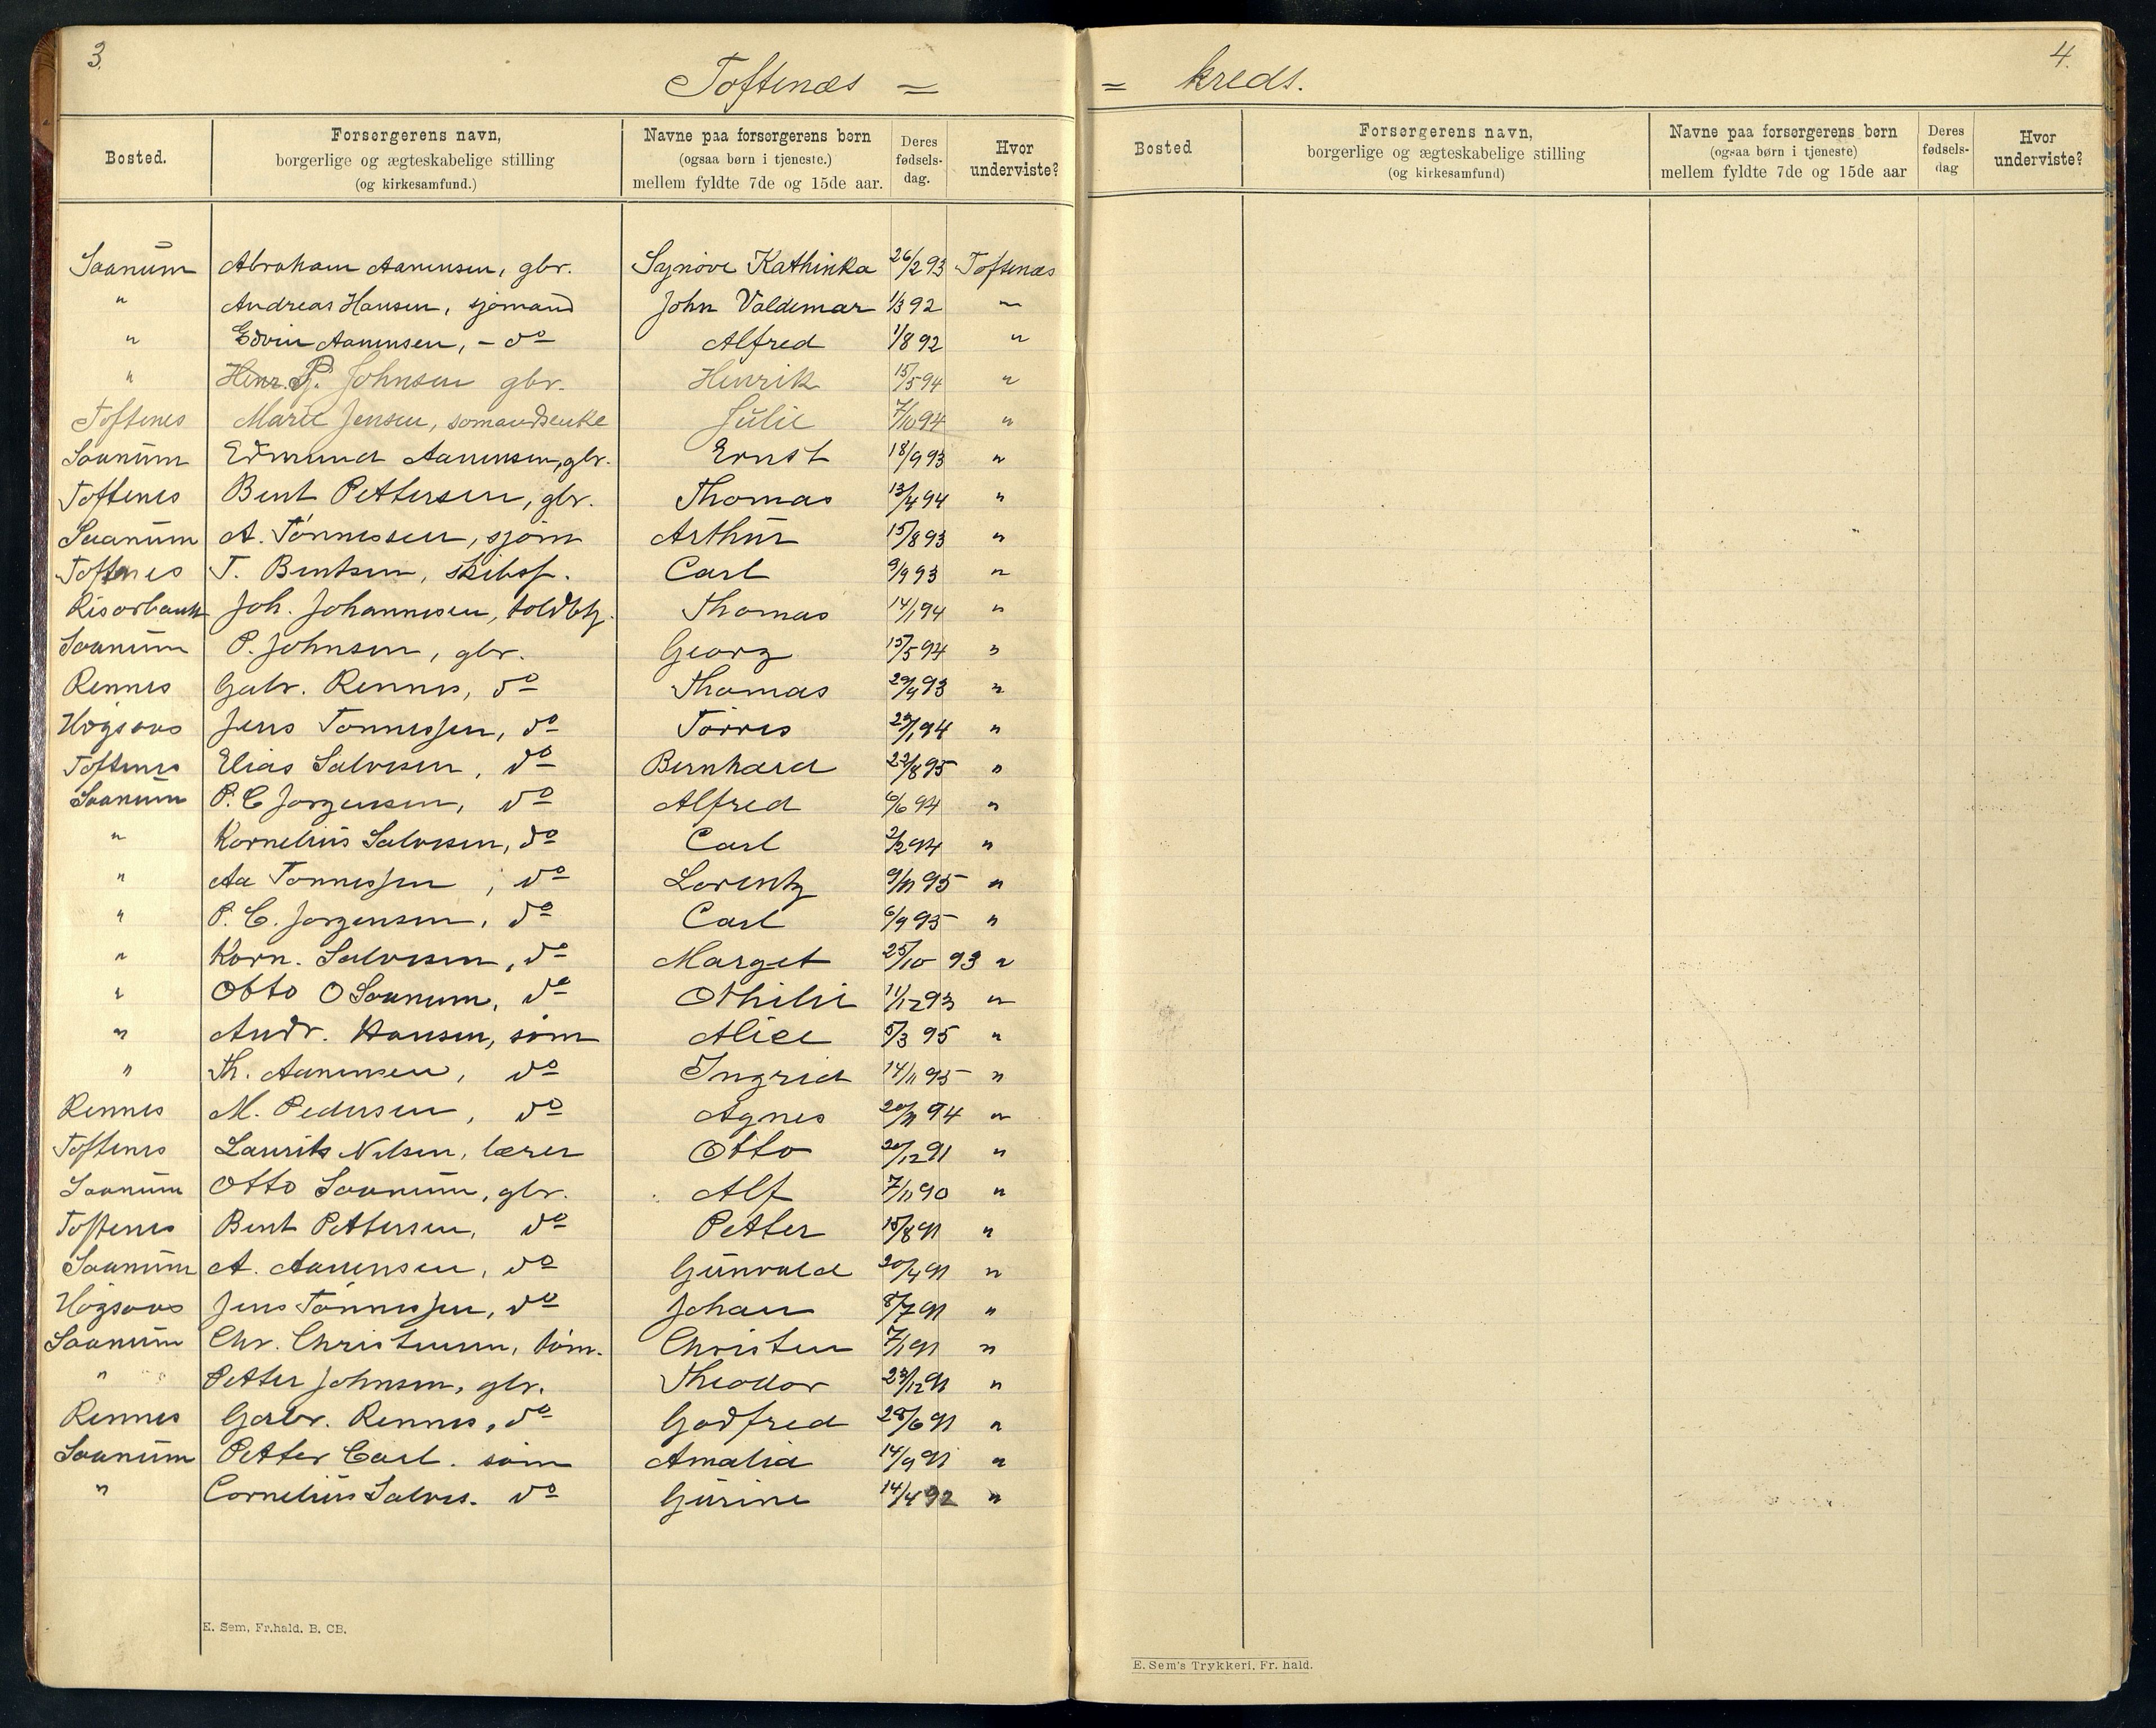 3.
Toftenæs =
Bosted.
Forsørgerens navn,
borgerlige og ægteskabelige stilling
(og kirkesamfund.)
Navne paa forsørgerens børn
(ogsaa børn i tjeneste.)
mellem fyldte 7de og 15de aar.
Deres
fødsels-
dag.
Hvor
underviste?
Saanum Abraham Aanensen, gbr. Synöve Kathinka 26/2 93 Toftenæs
" Andreas Hansen, sjømand John Valdemar 1/3 92 "
" Edvin Aanensen, - do Alfred 1/8 92 "
" Henr. P. Johnsen gbr. Henrik 15/5 94 "
Toftenes Marie Jensen, sømandsenke Julie 7/10 94 "
Saanum Edmund Aanensen, gbr. Ernst 18/9 93 "
Toftenes Bent Pettersen, gbr. Thomas 13/4 94 "
Saanum A. Tönnessen, sjøm Arthur 15/8 93 "
Toftenes T. Bentsen, skibsf. Carl 9/9 93 "
Risørbank Joh. Johannesen, toldbtj. Thomas 14/1 94 "
Saanum P. Johnsen, gbr. Georg 15/5 94 "
Rennes Gabr. Rennes, do Thomas 29/9 93 "
Høgsaas Jens Tønnessen, do Törres 29/1 94 "
Toftenes Elias Salvesen, do Bernhard 22/8 95 "
Saanum P. C Jørgensen, do Alfred 6/6 94 "
" Kornelius Salvesen, do Carl 2/2 94 "
" Aa Tønnessen, do Lorentz 9/11 95 "
" P. C. Jørgensen, do Carl 6/9 95 "
" Korn. Salvesen, do Marget 25/10 93 "
" Otto O Saanum, do Othilie 11/12 93 "
" Andr. Hansen, søm Alice 5/3 95 "
" Th. Aanensen, do Ingrid 14/11 95 "
Rennes M. Pedersen, do Agnes 20/11 94 "
Toftenes Laurits Nilsen, lærer Otto 20/12 91 "
Saanum Otto Saanum, gbr. Alf 7/11 90 "
Toftenes Bent Pettersen, do Petter 15/8 91 "
Saanum A. Aanensen, do Gunvald 20/4 91 "
Høgsaas Jens Tönnessen, do Johan 8/7 91 "
Saanum Chr. Christensen, töm. Christen 7/1 91 "
" Petter Johnsen, gbr. Theodor 23/12 91 "
Rennes Gabr. Rennes, do Godfred 28/6 91 "
Saanum Petter Carl. söm Amalia 14/9 91 "
" Cornelius Salves. do Gurine 14/4 92 "
E. Sem, Fr.hald. B. CB.
4.
= kreds.
Bosted
Forsørgerens navn,
borgerlige og ægteskabelige stilling
(og kirkesamfund)
Navne paa forsørgerens børn
(ogsaa børn i tjeneste)
mellem fyldte 7de og 15de aar
Deres
fødsels-
dag
Hvor
underviste?
E. Sem's Trykkeri, Fr. hald.